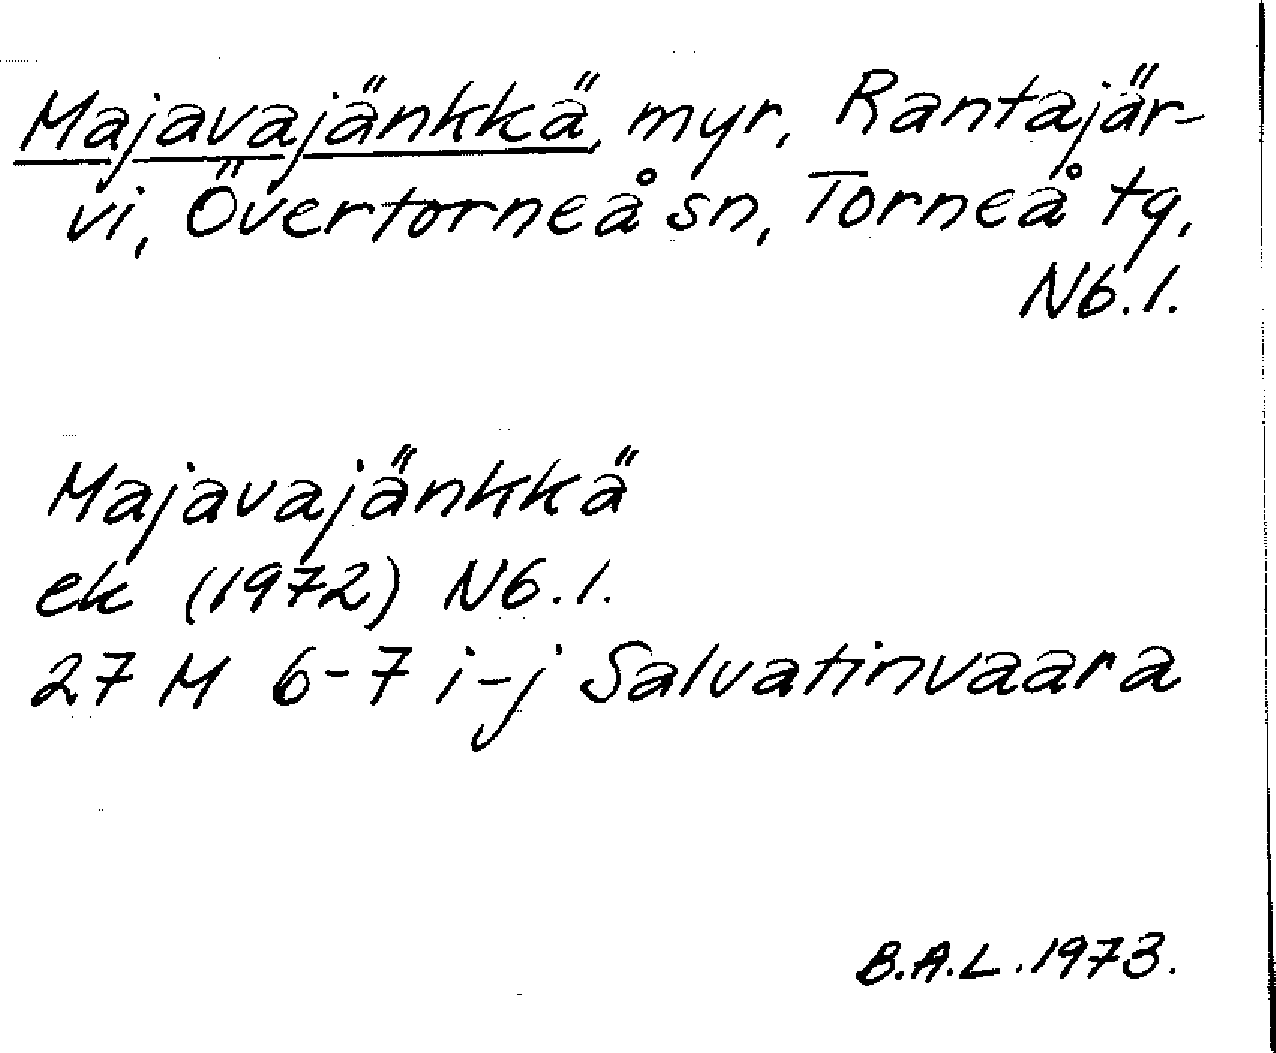 Majavajänkkä, myr, Rantajär-
vi, Övertorneå sn, Torneå tg,
N6.1.
Majavajänkkä
ek (1972) N6.1.
27 M 6-7 i-j Salvatinvaara
B.A.L. 1973.